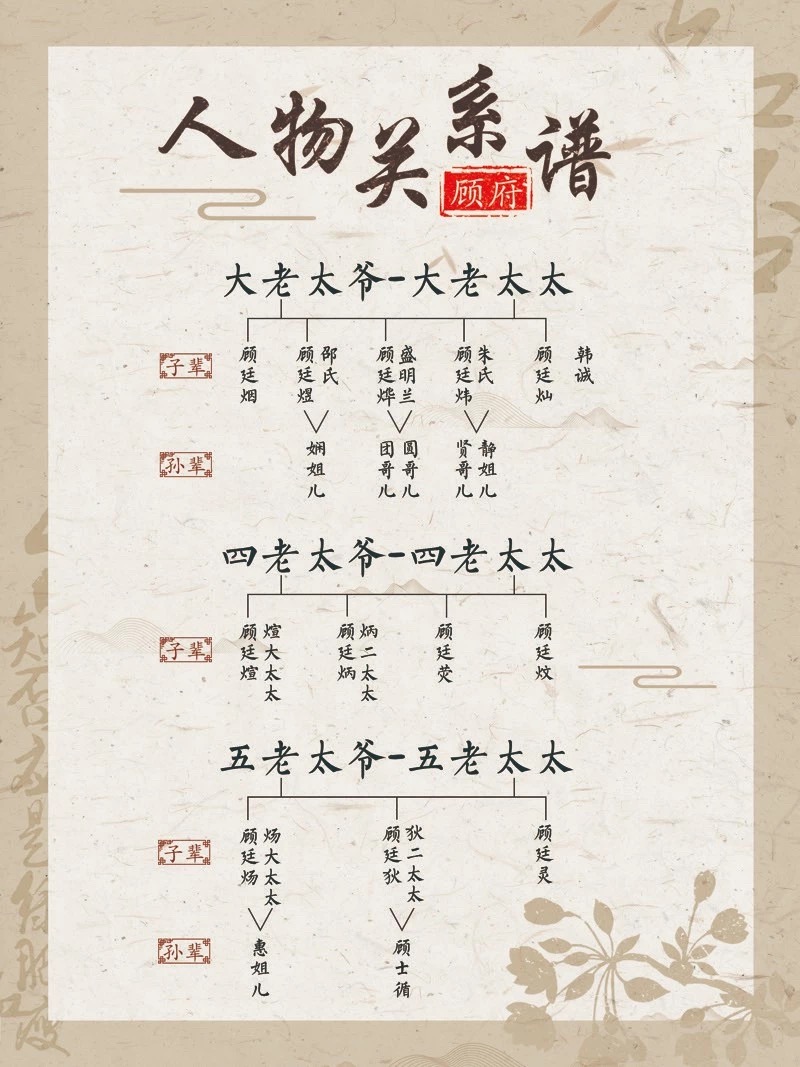 人物关系谱
顾府
大老太爷-大老太太
子辈
顾廷烟
顾廷煜
邵氏
顾廷烨
盛明兰
顾廷炜
朱氏
顾廷灿
韩诚
孙辈
娴姐儿
团哥儿
圆哥儿
贤哥儿
静姐儿
四老太爷-四老太太
子辈
顾廷煊
煊大太太
顾廷炳
炳二太太
顾廷荧
顾廷炆
五老太爷-五老太太
子辈
顾廷炀
炀大太太
顾廷狄
狄二太太
顾廷灵
孙辈
惠姐儿
顾士循
知否应是绿肥